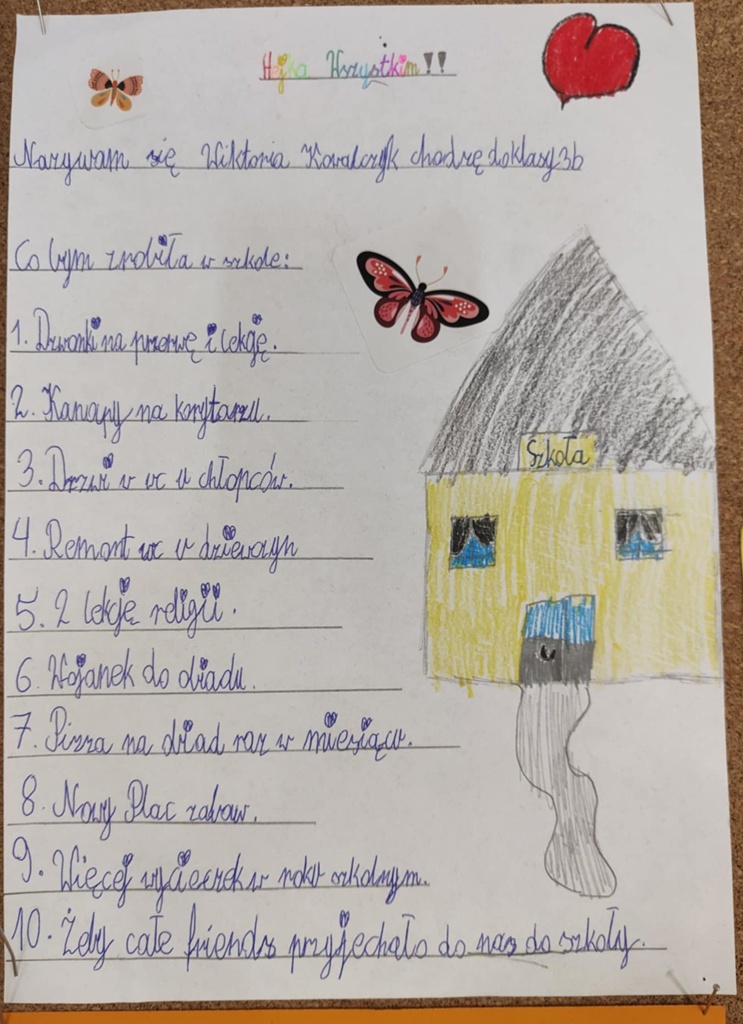 Hejka Wszystkim!!
Nazywam się Wiktoria Kowalczyk chodzę do klasy 3b
Co bym zrobiła w szkole:
1. Dzwonki na przerwę i lekcję.
2. Kanapy na korytarzu.
3. Drzwi w wc u chłopców.
4. Remont wc u dziewczyn
Szkoła
5. 2 lekcję religii.
6. Wojanek do obiadu.
7. Pizza na obiad raz w miesiącu.
8. Nowy Plac zabaw.
9. Więcej wycieczek w roku szkolnym.
10. Żeby całe friends przyjechało do nas do szkoły.